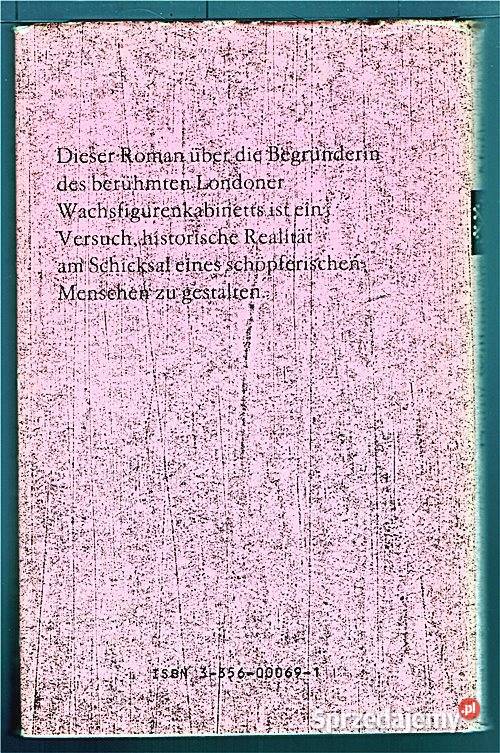 Dieser Roman über die Begründerin
des berühmten Londoner
Wachsfigurenkabinetts ist ein
Versuch, historische Realität
am Schicksal eines schöpferischen
Menschen zu gestalten.
ISBN 3-356-00069-1
Sprzedajemy.pl